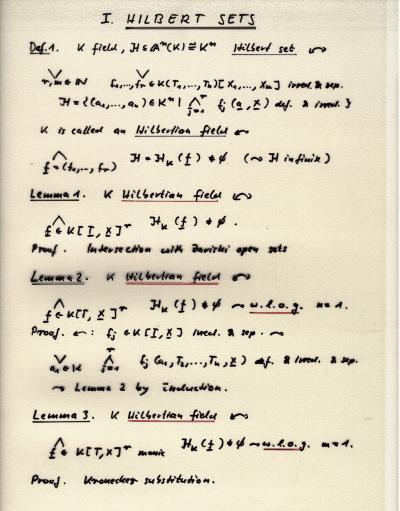 I. HILBERT SETS
Def.1. K field, H ⊆ Aⁿ(K) ≅ Kⁿ Hilbert set :⇔
⋁ r,m∈ℕ ⋁ f₁,...,fᵣ ∈ K(T₁,...,Tₙ)[X₁,...,Xₘ] irred. & sep.
H = {(a₁,...,aₙ) ∈ Kⁿ | ⋀ʳⱼ₌₁ fⱼ(a, X) def. & irred.}
K is called an Hilbertian field :⇔
⋀ f=(f₁,...,fᵣ) H = H_K(f) ≠ ∅ (↝ H infinite)
Lemma 1. K Hilbertian field ⇔
⋀ f ∈ K[T, X]ʳ H_K(f) ≠ ∅.
Proof. Intersection with Zariski open sets
Lemma 2. K Hilbertian field ⇔
⋀ f ∈ K[T, X]ʳ H_K(f) ≠ ∅ ↝ w.l.o.g. n=1.
Proof. ⇐: fⱼ ∈ K[T, X] irred. & sep. ↝
⋁ a₁∈K ⋀ʳⱼ₌₁ fⱼ(a₁,T₂,...,Tₙ,X) def. & irred. & sep.
↝ Lemma 2 by induction.
Lemma 3. K Hilbertian field ⇔
⋀ f ∈ K[T,X]ʳ monic H_K(f) ≠ ∅ ↝ w.l.o.g. m=1.
Proof. Kronecker substitution.